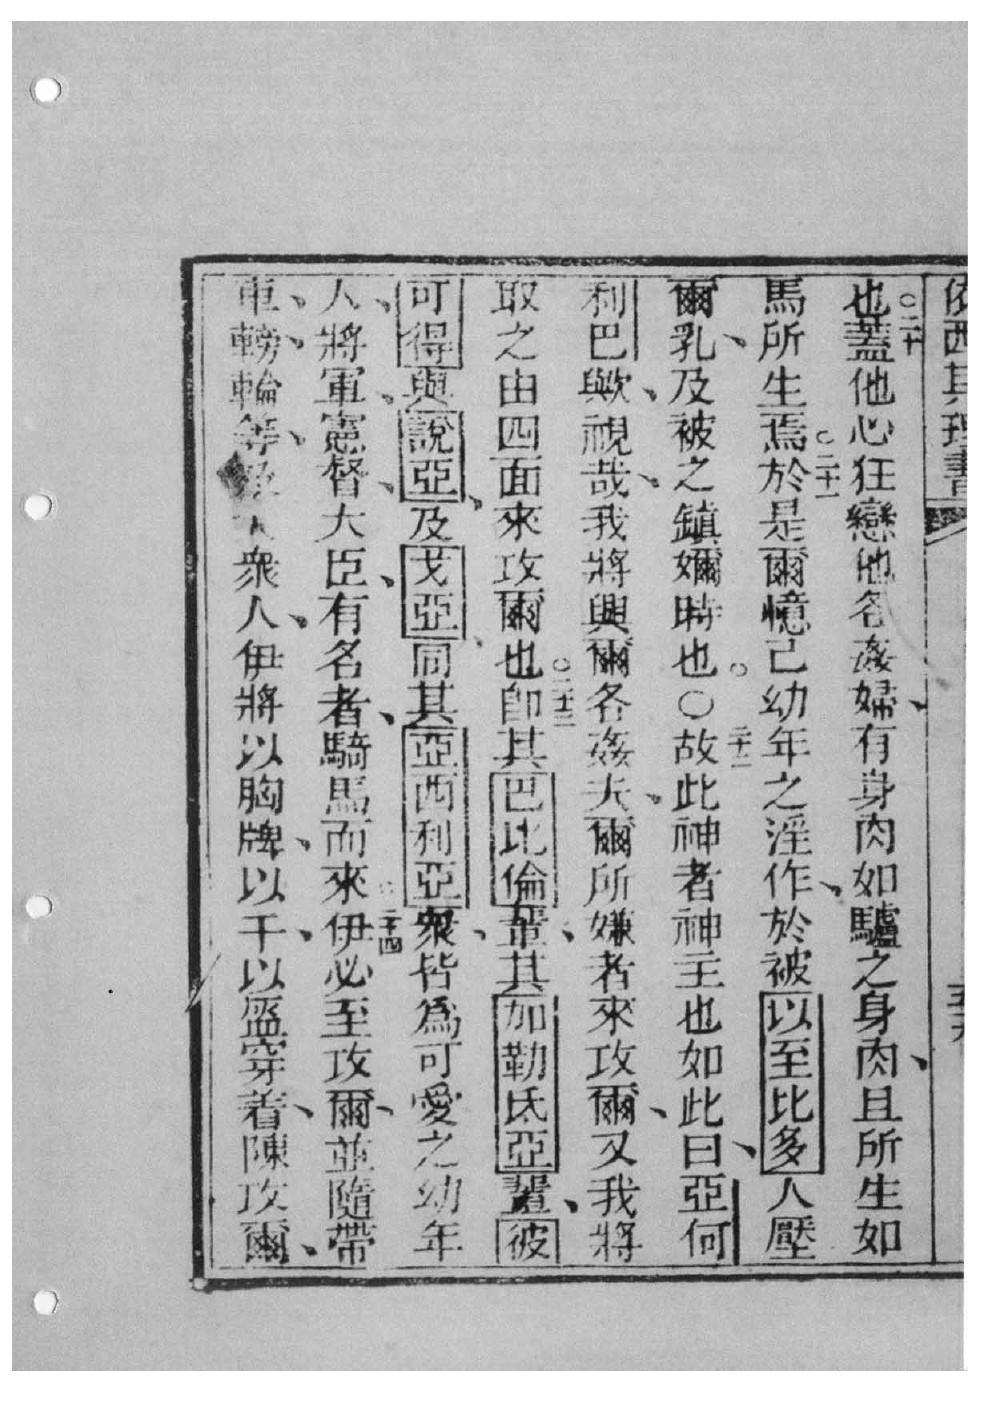 依西其理書
○二十
也蓋他心狂戀他各姦婦、有身肉如驢之身肉、且所生如
馬所生焉○二十一於是爾憶己幼年之淫作、於被以至比多人壓
爾乳、及被之鎮嬭時也○○二十二故此神者神主也如此曰、亞何
利巴歟、視哉、我將興爾各姦夫、爾所嫌者來攻爾、又我將
取之由四面來攻爾也○二十三卽其巴比倫輩、其加勒氐亞輩、彼
可得與說亞、及戈亞、同其亞西利亞衆、皆爲可愛之幼年
人、將軍、憲督、大臣、有名者、騎馬而來○二十四伊必至攻爾、並隨帶
車、轎、輪等、衆人、伊將以胸牌、以干、以盔穿着、陳攻爾、